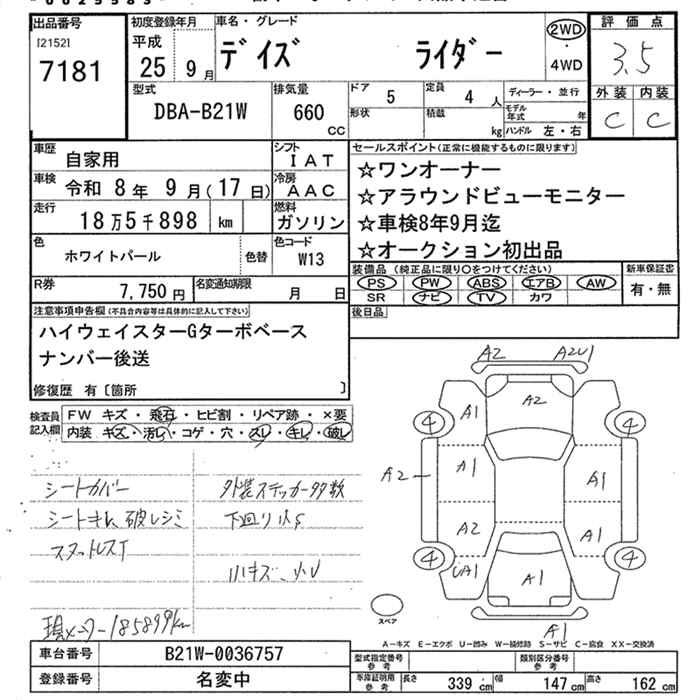 出品番号
[2152]
7181
初度登録年月
平成
25 9月
車名・グレード
デイズ ライダー
2WD
・
4WD
評価点
3.5
外装 内装
C C
型式
DBA-B21W
排気量
660
cc
ドア 5
定員 4人
形状
積載 kg
ディーラー・並行
モデル年式 年
ハンドル 左・右
車歴 自家用
シフト IAT
車検 令和 8年 9月(17日)
冷房 AAC
走行 18万5千898 km
燃料 ガソリン
色 ホワイトパール
色替
色コード W13
R券 7,750円
名変通知期限 月 日
セールスポイント(正常に機能するものに限ります)
☆ワンオーナー
☆アラウンドビューモニター
☆車検8年9月迄
☆オークション初出品
装備品 (純正品に限り○をつけてください)
PS PW ABS エアB AW
SR ナビ TV カワ
新車保証書
有・無
後日品
注意事項申告欄(不具合内容等は具体的に記入して下さい)
ハイウェイスターGターボベース
ナンバー後送
修復歴 有[箇所 ]
検査員記入欄
FW キズ・飛石・ヒビ割・リペア跡・×要
内装 キズ・汚れ・コゲ・穴・スレ・キレ・破レ
シートカバー
シートキレ破レシミ
スヌットレスT
外装ステッカー多数
下廻り小S
小キズ、小U
現メーター185899km
A2 A2U1
A1 A2
4 4
A2 A1 A1
A2 A1
4 4
UA1 A1
A1
スペア
A-キズ E-エクボ U-凹み W-補修跡 S-サビ C-腐食 XX-交換済
車台番号 B21W-0036757
登録番号 名変中
型式指定番号 参考
類別区分番号 参考
車庫証明用 参考
長さ 339cm
幅 147cm
高さ 162cm